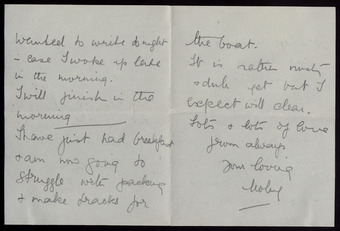 wanted to write tonight
in case I woke up late
in the morning.
I will finish in the
morning
I have just had breakfast
& am now going to
struggle with packing
& make tracks for
the boat.
It is rather misty
& dull yet but I
expect will clear.
Lots & lots of love
from always
Your loving